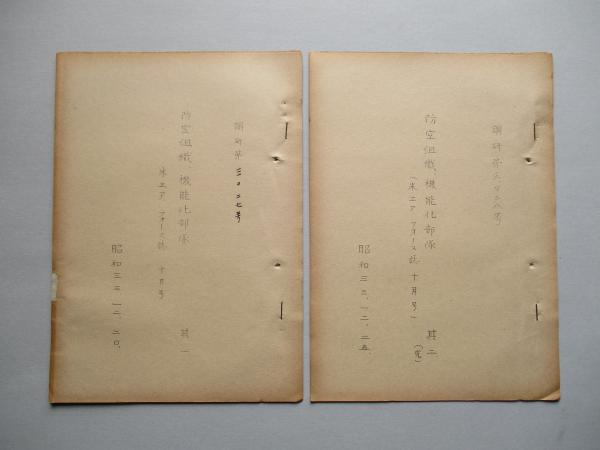 調研第三〇二八号
防空組織、機能化部隊
(米エア フォース誌 十月号)
其二
(完)
昭和三三、一二、二五、
調研第三〇二七号
防空組織、機能化部隊
米エア フォース誌 十月号
其一
昭和三三、一二、二〇、